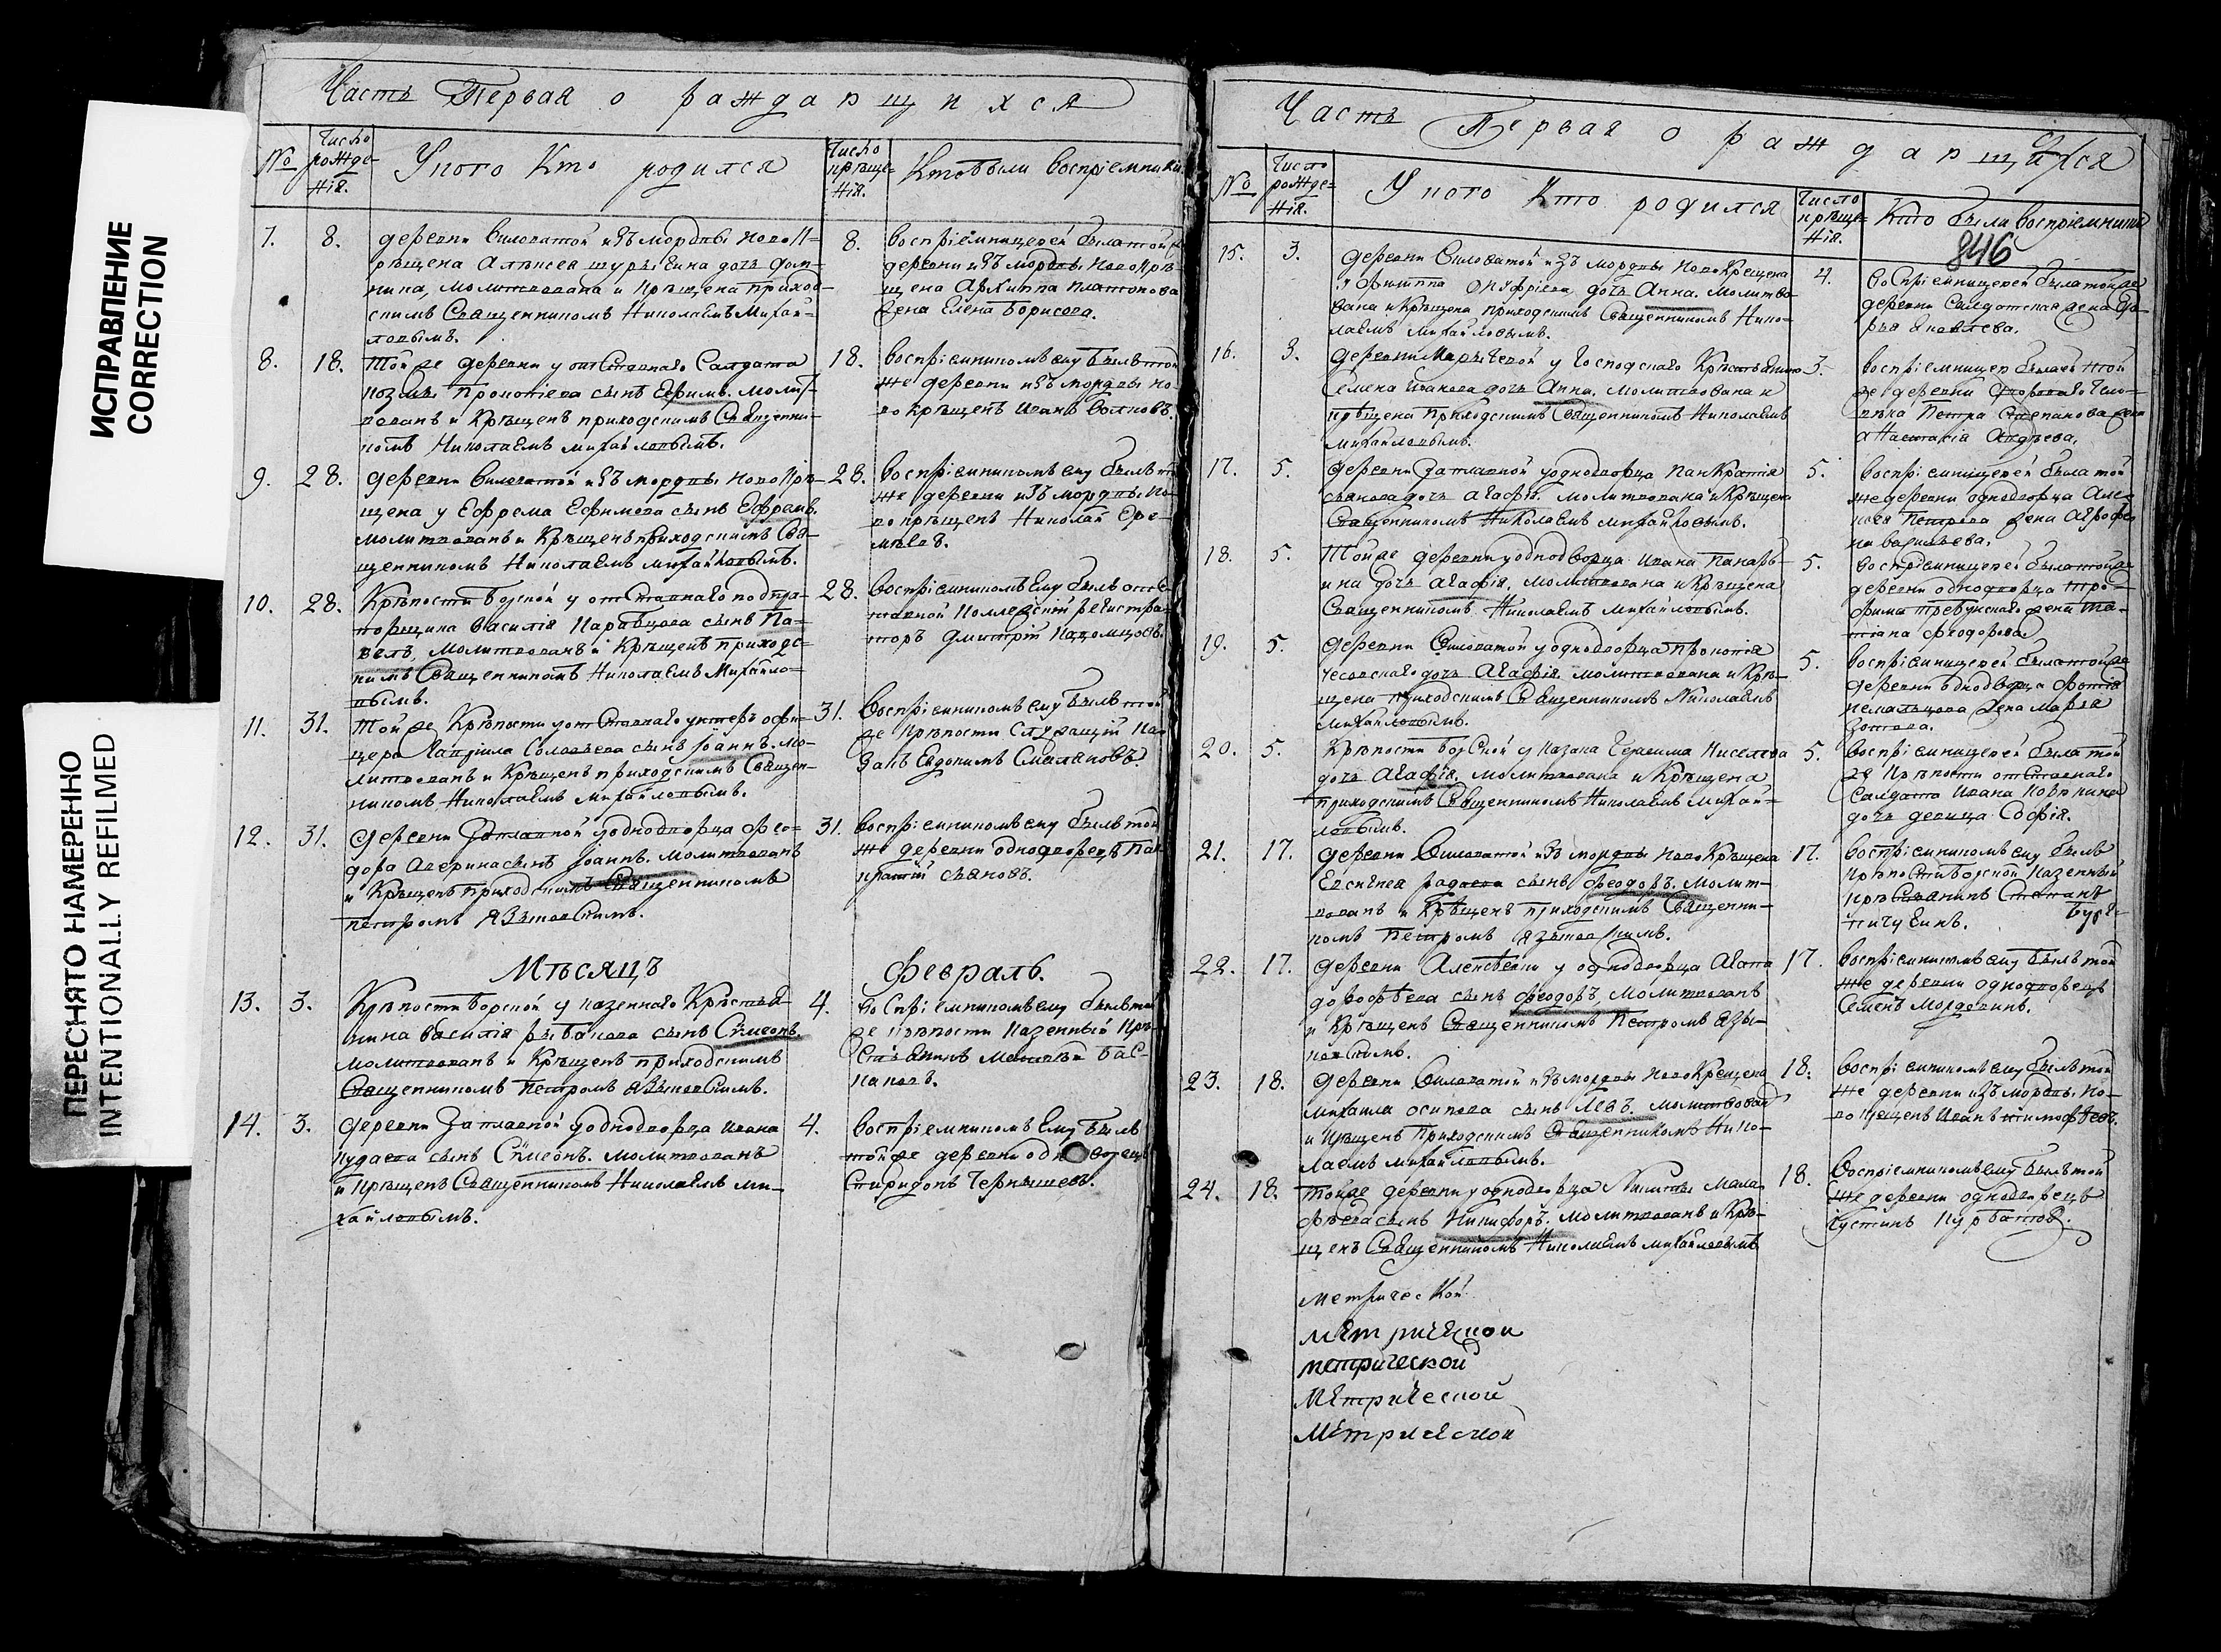 ИСПРАВЛЕНИЕ
CORRECTION
ПЕРЕСНЯТО НАМЕРЕННО
INTENTIONALLY REFILMED
Часть Первая о раждающихся
№
Число рожденія.
У кого кто родился
Число крѣщенія.
Кто были воспріемники
7. 8.
деревни Силоватой изъ мордвы новок-
рѣщена Алѣксея дочь Дом-
никиа, молитвована и крѣщена приход-
скимъ Священникомъ Николаемъ Михай-
ловымъ.
8.
воспріемницей была той
деревни изъ мордвы новокрѣ-
щена Архиппа Платонова
жена Елена Борисова.
8. 18.
Той же деревни у отставнаго Салдата
Козмы Прокопіева сынъ Ефимъ. молит-
вованъ и крѣщенъ приходскимъ Священни-
комъ Николаемъ Михайловымъ.
18.
воспріемникомъ ему былъ той
же деревни изъ мордвы но-
вокрѣщенъ Иванъ
9. 28.
деревни Силоватой изъ мордвы новокрѣ-
щена у Ефрема Ефимева сынъ Ефремъ.
молитвованъ и крѣщенъ приходскимъ Свя-
щенникомъ Николаемъ Михайловымъ.
28.
воспріемникомъ ему былъ той
же деревни изъ мордвы но-
вокрѣщенъ Николай Ере-
мѣевъ.
10. 28.
Крѣпости Борской у отставнаго подпра-
порщика Василія сынъ Па-
велъ, молитвованъ и крѣщенъ приходс-
кимъ Священникомъ Николаемъ Михайло-
вымъ.
28.
воспріемникомъ ему былъ отс-
тавной Коллежскій регистра-
торъ Дмитрій
11. 31.
Той же Крѣпости у отставнаго унтеръ офи-
цера Гаврила Соловьева сынъ Іоаннъ. мо-
литвованъ и крѣщенъ приходскимъ Священ-
никомъ Николаемъ Михайловымъ.
31.
воспріемникомъ ему былъ той
же крѣпости Служащій Ка-
закъ Евдокимъ
12. 31.
деревни Заплавной у однодворца Фео-
дора Аверина сынъ Іоаннъ. молитвованъ
и крѣщенъ приходскимъ Священникомъ
Петромъ Языковскимъ.
31.
воспріемникомъ ему былъ той
же деревни однодворецъ Пан-
кратій
Мѣсяцъ Февраль.
13. 3.
Крѣпости Борской у казеннаго Крѣстья-
нина Василія Рыбакова сынъ Сѵмеонъ
молитвованъ и крѣщенъ приходскимъ
Священникомъ Петромъ Языковскимъ.
4.
воспріемникомъ ему былъ той
же крѣпости казенный крѣ-
стьянинъ Матвѣй Бас-
каковъ.
14. 3.
деревни Заплавной у однодворца Ивана
Кудаева сынъ Сѵмеонъ. молитвованъ
и крѣщенъ Священникомъ Николаемъ Ми-
хайловымъ.
4.
воспріемникомъ ему былъ
той же деревни однодворецъ
Спиридонъ Чернышевъ.
Часть Первая о раждающихся
№
Число рожденія.
У кого кто родился
Число крѣщенія.
Кто были воспріемники
846
15. 3.
деревни Силоватой изъ мордвы новокрещена
у Филиппа Онуфріева дочь Анна. молитво-
вана и крѣщена приходскимъ Священникомъ Нико-
лаемъ Михайловымъ.
4.
воспріемницей была той же
деревни Салдатская жена
Яковлева.
16. 3.
деревни у Господскаго Крѣстьянина
Семена Иванова дочь Анна. молитвована и
крѣщена приходскимъ Священникомъ Николаемъ
Михайловымъ.
3.
воспріемницей была той
же деревни двороваго чело-
вѣка Петра Степанова жена
Анастасія Андреева.
17. 5.
деревни Заплавной у однодворца Панкратія
дочь Агафія. молитвована и крѣщена
Священникомъ Николаемъ Михайловымъ.
5.
воспріемницей была той
же деревни однодворца Алек-
сея Петрова жена Агрофе-
на Васильева.
18. 5.
Той же деревни у однодворца Ивана Панарь-
ина дочь Агафія. молитвована и крѣщена
Священникомъ Николаемъ Михайловымъ.
5.
воспріемницей была той же
деревни однодворца Тро-
фима Требунскаго жена Та-
тіана Феодорова
19. 5.
деревни Силоватой у однодворца Прокопія
дочь Агафія. молитвована и крѣ-
щена приходскимъ Священникомъ Николаемъ
Михайловымъ.
5.
воспріемницей была той же
деревни однодворца Фотія
жена Марѳа
Зотова.
20. 5.
Крѣпости Борской у казака Герасима Киселева
дочь Агафія. молитвована и крѣщена
приходскимъ Священникомъ Николаемъ Михай-
ловымъ.
5.
воспріемницей была той
же крѣпости отставнаго
Салдата Ивана
дочь девица Софія.
21. 17.
деревни Силоватой изъ мордвы новокрѣщена
Евсигнея Радаева сынъ Феодоръ. молит-
вованъ и крѣщенъ приходскимъ Священни-
комъ Петромъ Языковскимъ.
17.
воспріемникомъ ему былъ
крѣпости Борской казенный
крѣстьянинъ Степанъ
22. 17.
деревни Алексѣевки у однодворца Агапа
Дорофѣева сынъ Феодоръ, молитвованъ
и крѣщенъ Священникомъ Петромъ Язы-
ковскимъ.
17.
воспріемникомъ ему былъ той
же деревни однодворецъ
Семенъ Мордовинъ.
23. 18.
деревни Силоватой изъ мордвы новокрещена
Михаила Осипова сынъ Левъ. молитвованъ
и крѣщенъ приходскимъ Священникомъ Нико-
лаемъ Михайловымъ.
18.
воспріемникомъ ему былъ той
же деревни изъ мордвы но-
вокрещенъ Иванъ Тимофѣевъ.
24. 18.
Той же деревни у однодворца Никиты Мала-
фѣева сынъ Никифоръ. молитвованъ и крѣ-
щенъ Священникомъ Николаемъ Михайловымъ
18.
воспріемникомъ ему былъ той
же деревни однодворецъ
Іустинъ Курбатовъ.
метрической
метрической
метрической
метрической
метрической